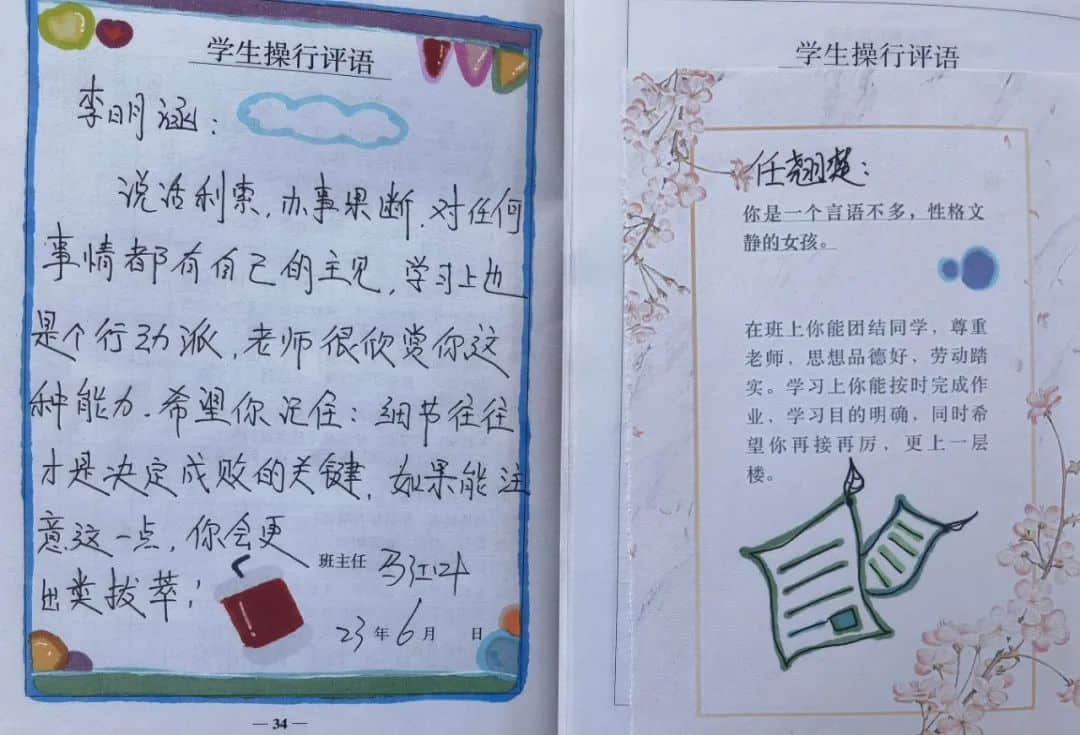 学生操行评语
李明涵：
说话利索，办事果断，对任何
事情都有自己的主见，学习上也
是个行动派，老师很欣赏你这
种能力，希望你记住：细节往往
才是决定成败的关键，如果能注
意这一点，你会更
出类拔萃！
班主任
23年6月 日
— 34 —
学生操行评语
任翘楚：
你是一个言语不多，性格文
静的女孩。
在班上你能团结同学，尊重
老师，思想品德好，劳动踏
实。学习上你能按时完成作
业，学习目的明确，同时希
望你再接再厉，更上一层
楼。